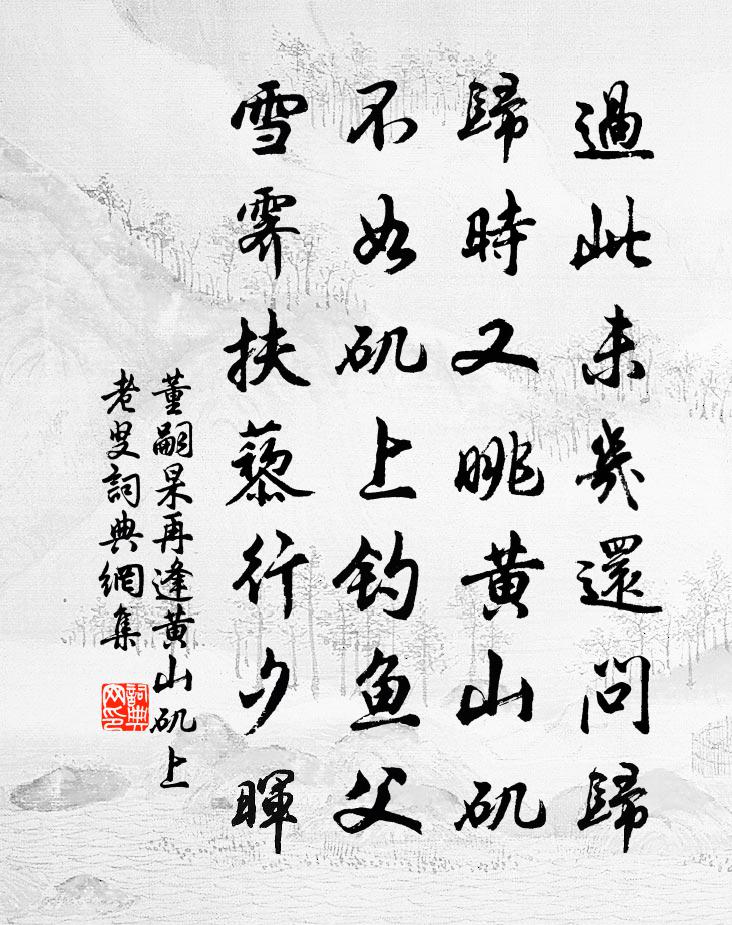 過此未幾還問歸
歸時又眺黃山矶
不如矶上釣魚父
雪霽扶藜行夕暉
董嗣杲再逢黄山矶上
老叟詞典網集
詞典网印